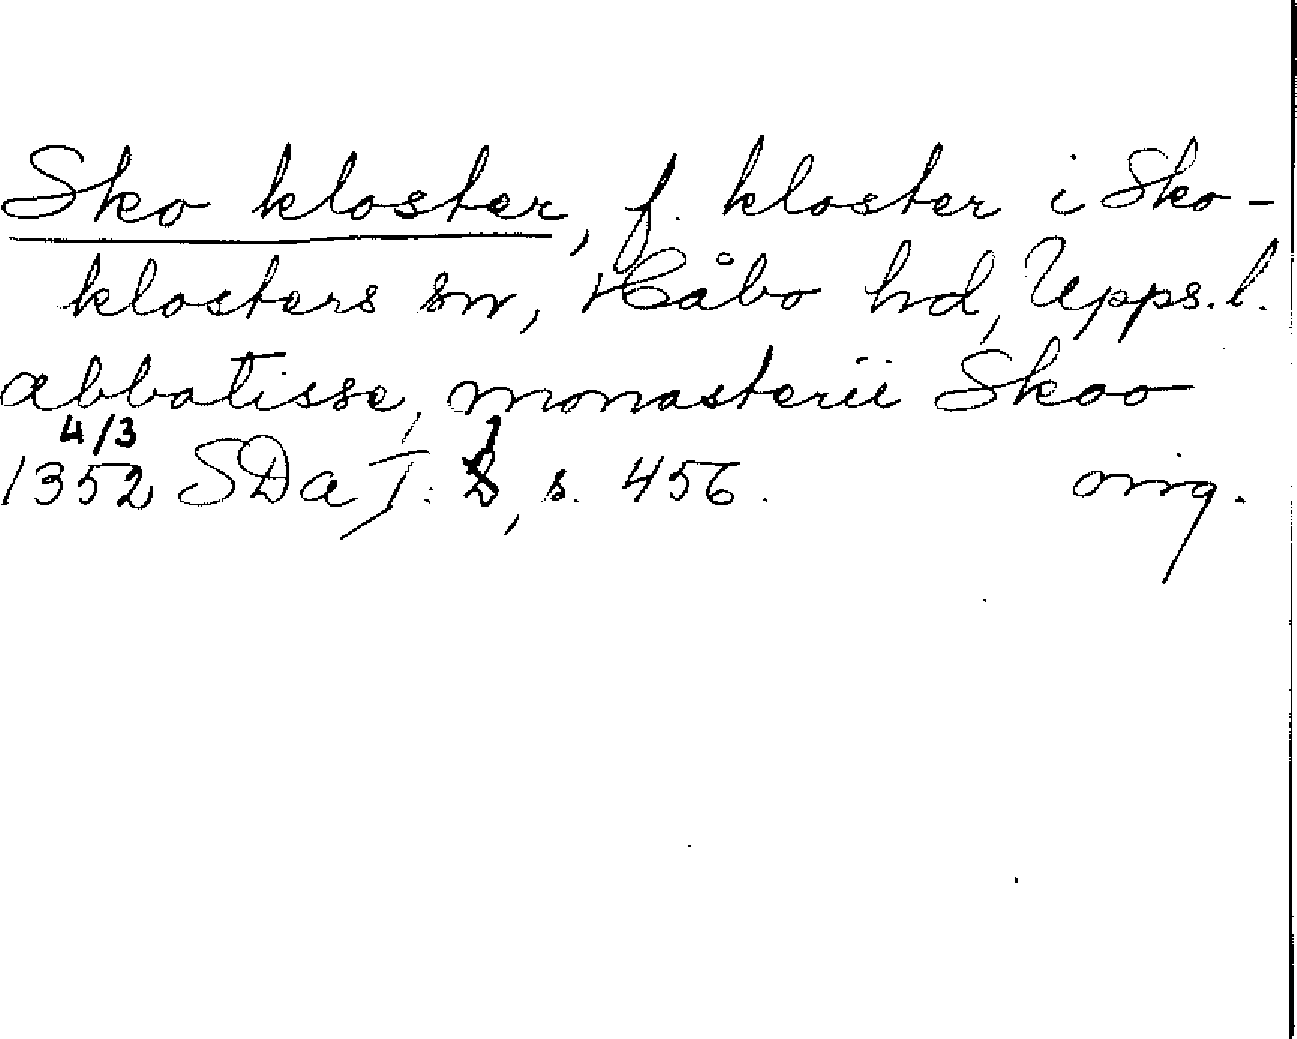 Sko kloster, f. kloster i Sko-
klosters sn, Håbo hd, Upps. l.
abbatisse, monasterii Skoo
4/3
1352 SDa I: 1, s. 456. orig.